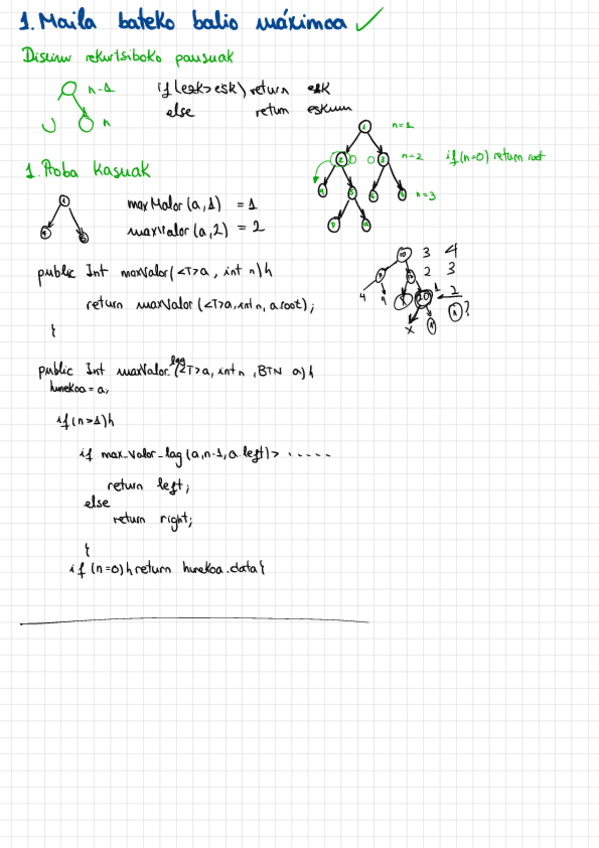 1. Maila bateko balio máximoa ✓
Diseinu rekurtsiboko pausuak
n-1
n
if (ezk>esk) return ezk
else return eskuin
n=1
n=2 if(n=0) return root
n=3
1. Proba kasuak
maxValor (a,1) = 1
maxValor (a,2) = 2
3 4
2 3
1 2
public Int maxValor(<T>a, int n){
return maxValor (<T>a, int n, a.root);
}
public Int maxValor_lag(<T>a, int n, BTN a){
hurekoa = a,
if(n>1){
if max_valor_lag (a,n-1,a.left)> .....
return left;
else
return right;
}
if (n=0){return hurekoa.data}